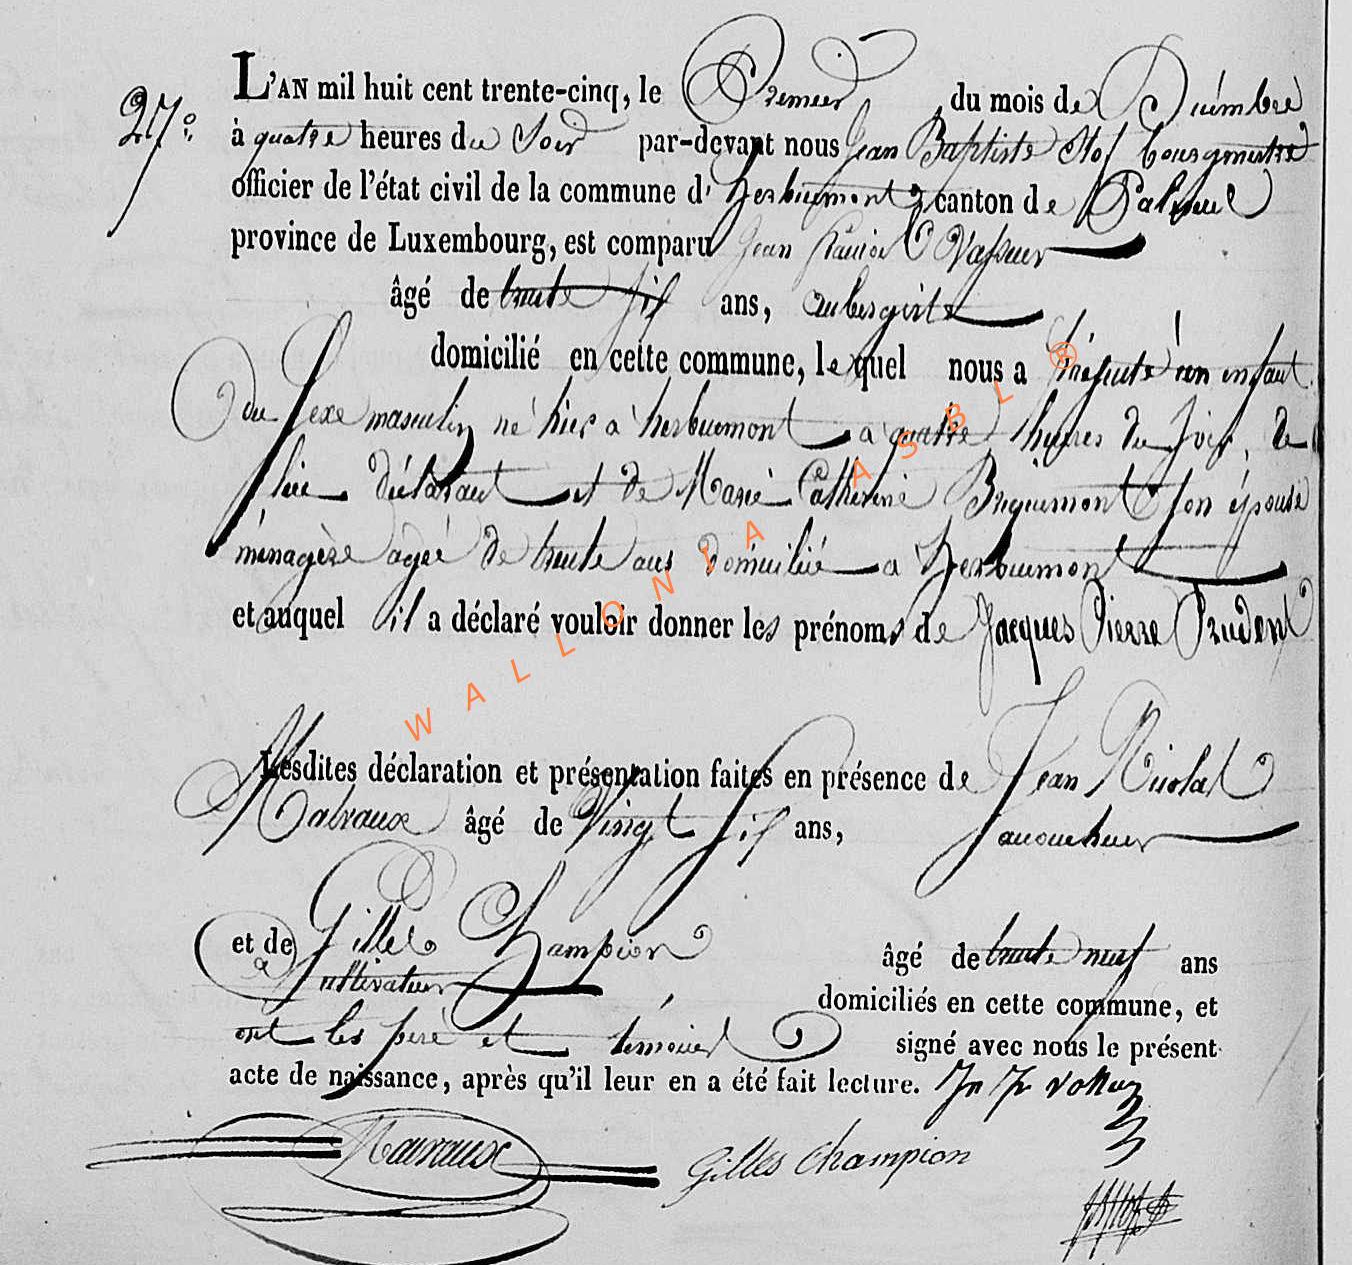 27°.
L'AN mil huit cent trente-cinq, le Premier du mois de Décembre
à quatre heures du Soir par-devant nous Jean Baptiste Stof bourgmestre
officier de l'état civil de la commune d' herbeumont canton de Paliseul
province de Luxembourg, est comparu Jean
âgé de trente six ans, aubergiste
domicilié en cette commune, le quel nous a présenté un enfant
du sexe masculin né hier a herbeumont a quatre heures du soir, de
lui déclarant et de Marie Catherine Briquemont son épouse
ménagère agée de trente ans domiciliée a herbeumont
et auquel il a déclaré vouloir donner les prénoms de Jacques Pierre Prudent
Lesdites déclaration et présentation faites en présence de Jean Nicolas
Malvaux âgé de Vingt six ans,
et de Gilles Champion âgé de trente neuf ans
cultivateur domiciliés en cette commune, et
ont les père et témoins signé avec nous le présent
acte de naissance, après qu'il leur en a été fait lecture.
Malvaux Gilles Champion
WALLONIA ASBL ®